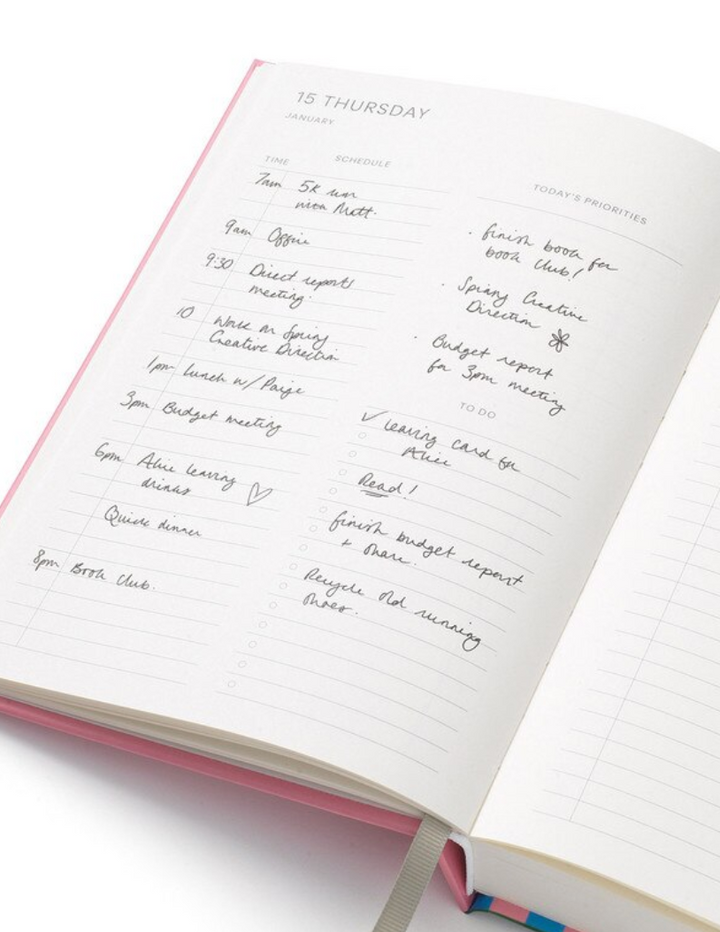 15 THURSDAY
JANUARY
TIME SCHEDULE
7am 5k run
with Matt.
9am Office
9:30 Direct reports
meeting.
10 Work on Spring
Creative Direction
1pm lunch w/ Paige
3pm Budget meeting
6pm Alice leaving
drinks ♡
Quick dinner
8pm Book club.
TODAY'S PRIORITIES
· finish book for
book club!
· Spring Creative
Direction
· Budget report
for 3pm meeting
TO DO
✓ leaving card for
Alice
Read!
finish budget report
+ share.
Recycle old running
shoes.